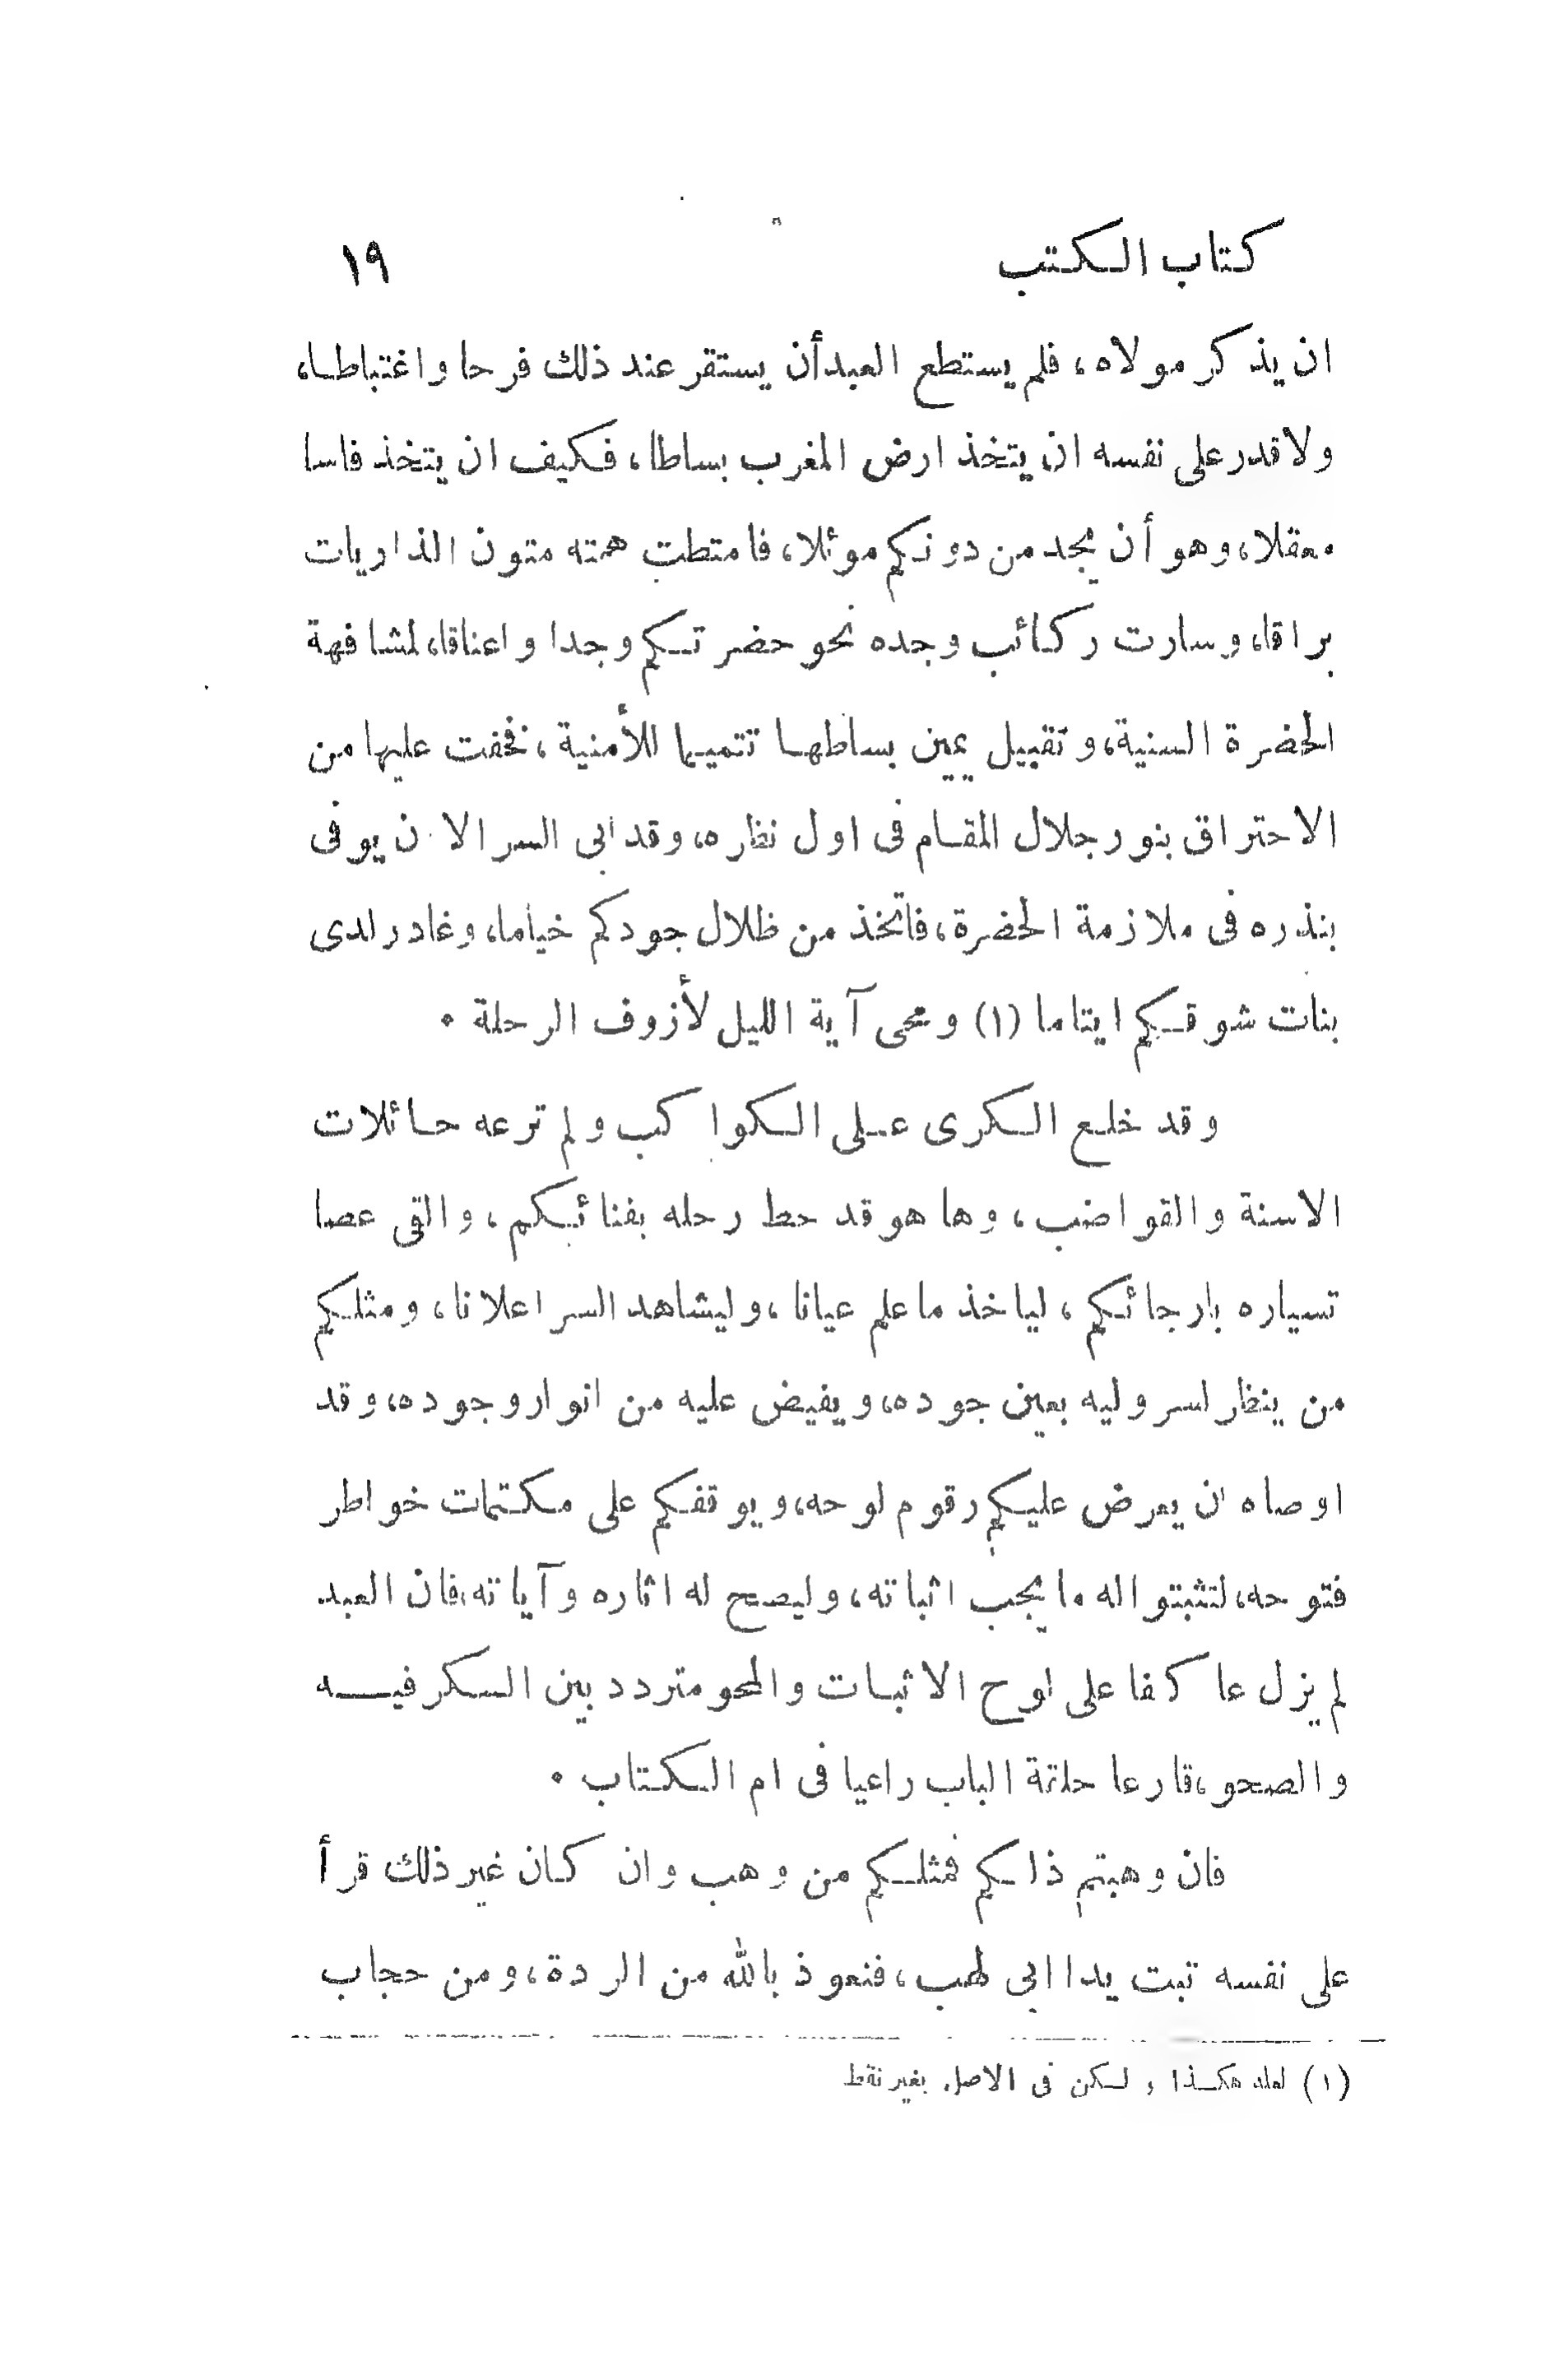 كتاب الكتب ١٩
ان يذكر مولاه، فلم يستطع العبد أن يستقر عند ذلك فرحا واغتباطا،
ولا قدر على نفسه ان يتخذ ارض المغرب بساطا، فكيف ان يتخذ فاسا
معقلا، وهو أن يجد من دونكم موئلا، فامتطت همته متون الذاريات
براقا، وسارت ركائب وجده نحو حضرتكم وجدا واعناقا، لمشافهة
الحضرة السنية، وتقبيل يمين بساطها تتميما للأمنية، نخفت عليها من
الاحتراق بنور جلال المقام فى اول نظاره، وقد ابى السر الا ن يوفى
بنذره فى ملازمة الحضرة، فاتخذ من ظلال جودكم خياما، وغادر لدى
بنات شوقكم ايتاما (١) ومحى آية الليل لأزوف الرحلة ٠
وقد خلع الكرى على الكواكب ولم ترعه حائلات
الاسنة والقواضب، وها هو قد حط رحله بفنائكم، والقى عصا
تسياره بارجائكم، لياخذ ما علم عيانا، وليشاهد السر اعلانا، ومثلكم
من ينظار لسر وليه بعين جوده، ويفيض عليه من انوار وجوده، وقد
اوصاه ان يعرض عليكم رقوم لوحه، ويوقفكم على مكتمات خواطر
فتوحه، لتثبتوا له ما يجب اثباته، وليصح له اثاره وآياته، فان العبد
لم يزل عاكفا على لوح الاثبات والمحو متردد بين السكر فيه
والصحو، قارعا حلقة الباب راعيا فى ام الكتاب ٠
فان وهبتم ذاكم فمثلكم من وهب وان كان غير ذلك قرأ
على نفسه تبت يدا ابى لهب، فنعوذ بالله من الردة، ومن حجاب
(١) لعله هكذا ولكن فى الاصل بغير نقط